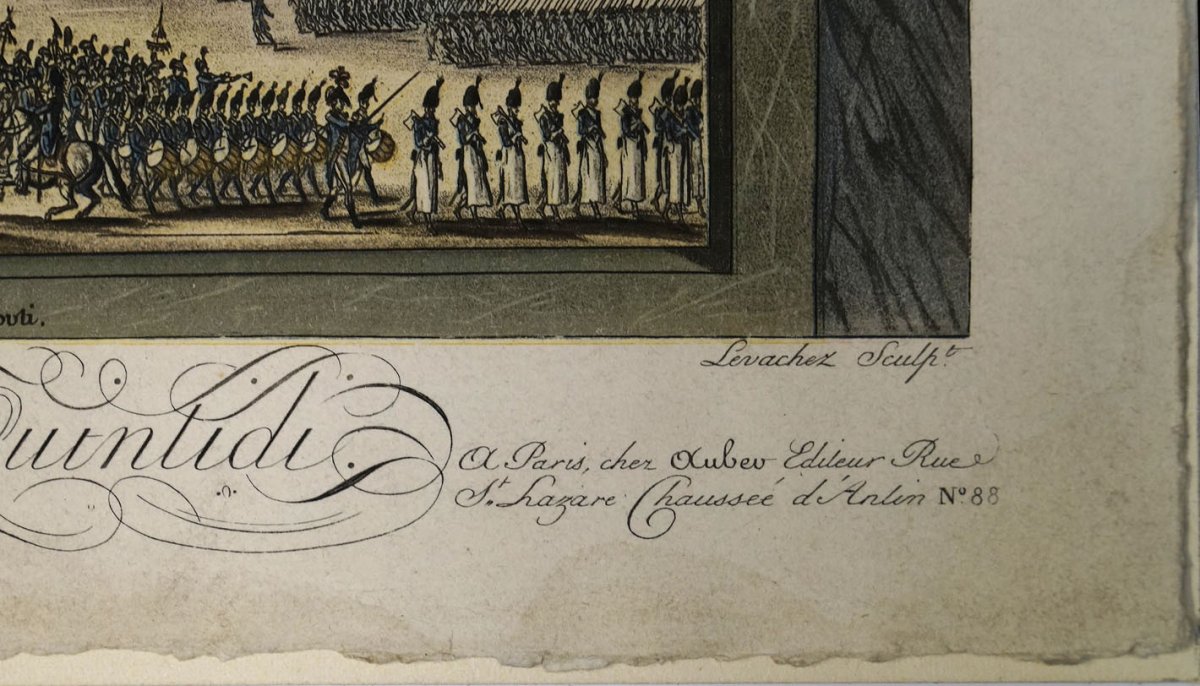 Levachez Sculp.t
Quintidi.
A Paris, chez Auber Editeur Rue
St. Lazare Chausseé d'Antin No. 88